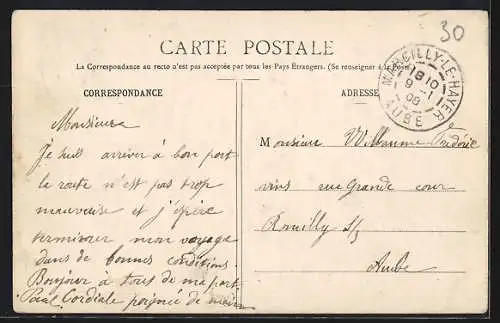 30
CARTE POSTALE
La Correspondance au recto n'est pas acceptée par tous les Pays Étrangers. (Se renseigner à la Poste)
CORRESPONDANCE
ADRESSE
MARCILLY-LE-HAYER
18 10
9 - 1
08
AUBE
Monsieur
Je suis arriver à bon port
la route n'est pas trop
mauvaise et j'éspère
terminer mon voyage
dans de bonnes conditions.
Bonjour à tous de ma part
Cordiale poignée de main
Monsieur Frédéric
vins rue Grande cour
Romilly s/s
Aube